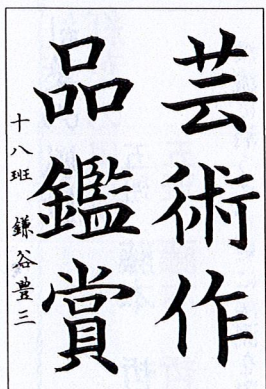 芸術作
品鑑賞
十八班 鎌谷豊三